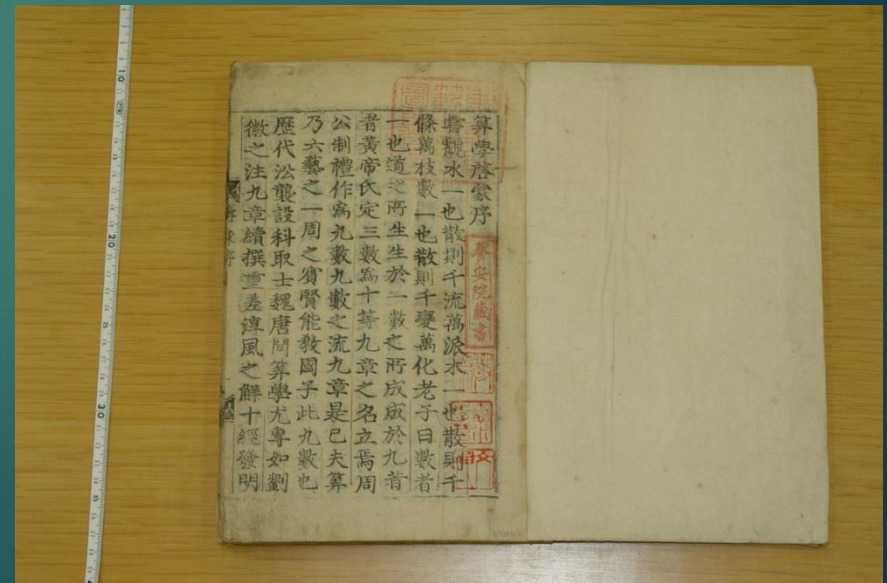 算學啓蒙序
嘗觀水一也散則千流萬派木一也散則千
條萬枝數一也散則千變萬化老子曰數者
一也道之所生生於一數之所成成於九昔
者黃帝氏定三數爲十等九章之名立焉周
公制禮作爲九數九數之流九章是已夫算
乃六藝之一周之賓賢能敎國子此九數也
歷代沿襲設科取士魏唐間算學尤專如劉
徽之注九章續撰重差淳風之解十經發明
養安院藏書
10
20
30